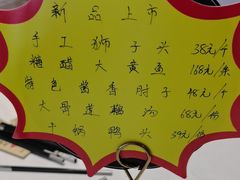 新品上市
手工狮子头 38元/个
糟醋大黄鱼 168元/条
特色酱香肘子 48元/个
大骨莲藕汤 68元/份
干锅鸭头 39元/份